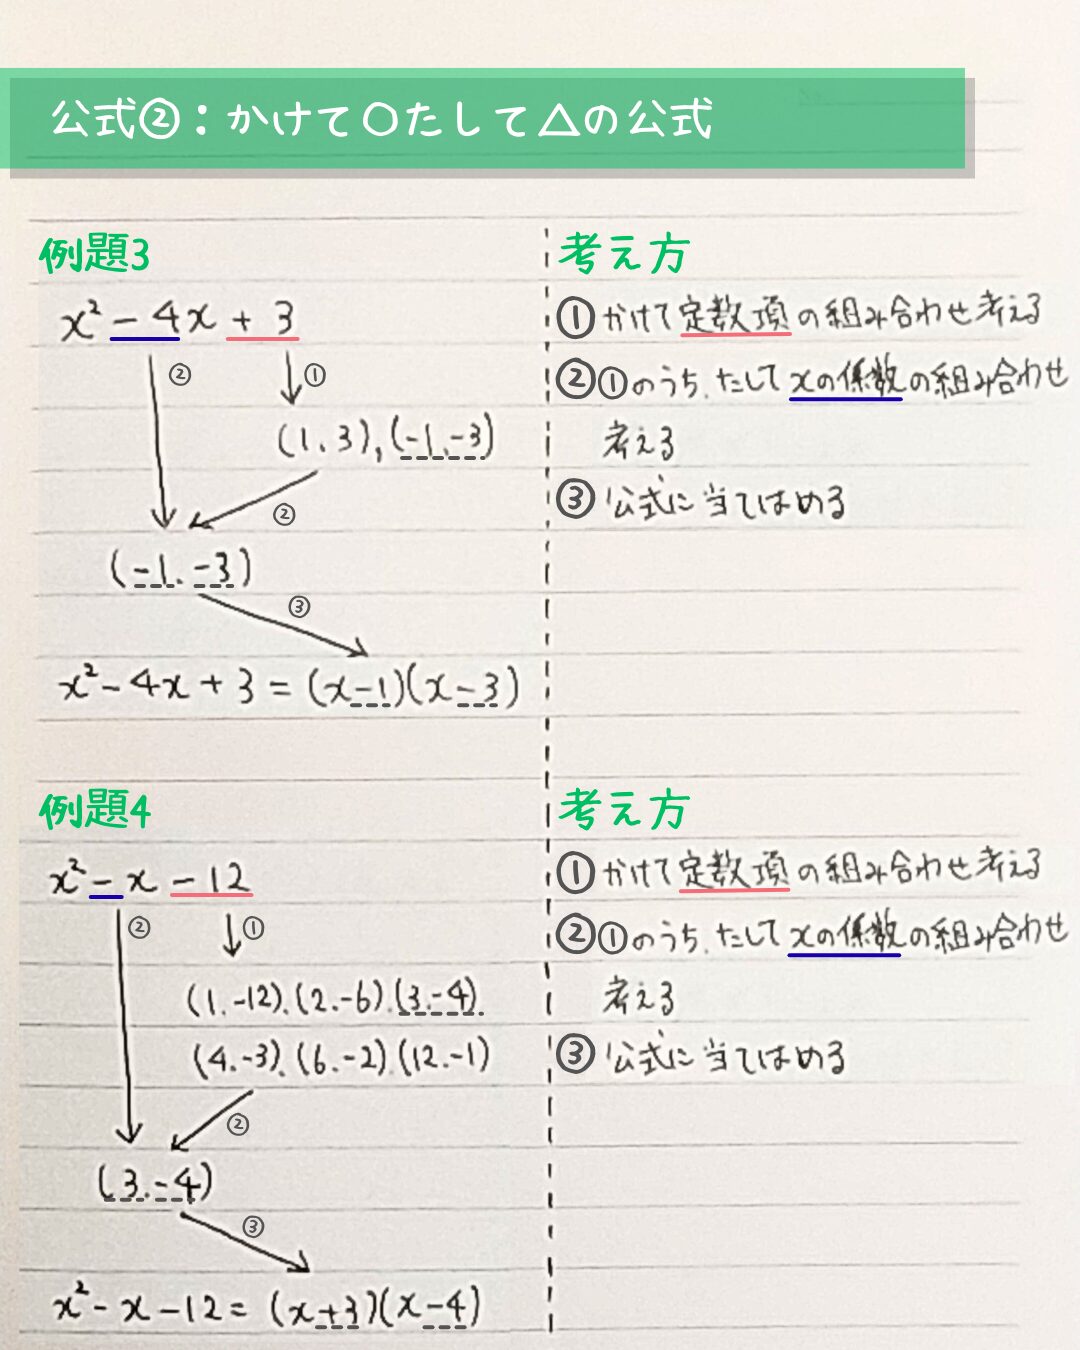 公式②：かけて○たして△の公式
例題3
x² - 4x + 3
② ①
(1, 3), (-1, -3)
②
(-1, -3)
③
x² - 4x + 3 = (x-1)(x-3)
考え方
①かけて定数項の組み合わせ考える
②①のうち、たしてxの係数の組み合わせ
考える
③公式に当てはめる
例題4
x² - x - 12
② ①
(1, -12), (2, -6), (3, -4)
(4, -3), (6, -2), (12, -1)
②
(3, -4)
③
x² - x - 12 = (x+3)(x-4)
考え方
①かけて定数項の組み合わせ考える
②①のうち、たしてxの係数の組み合わせ
考える
③公式に当てはめる